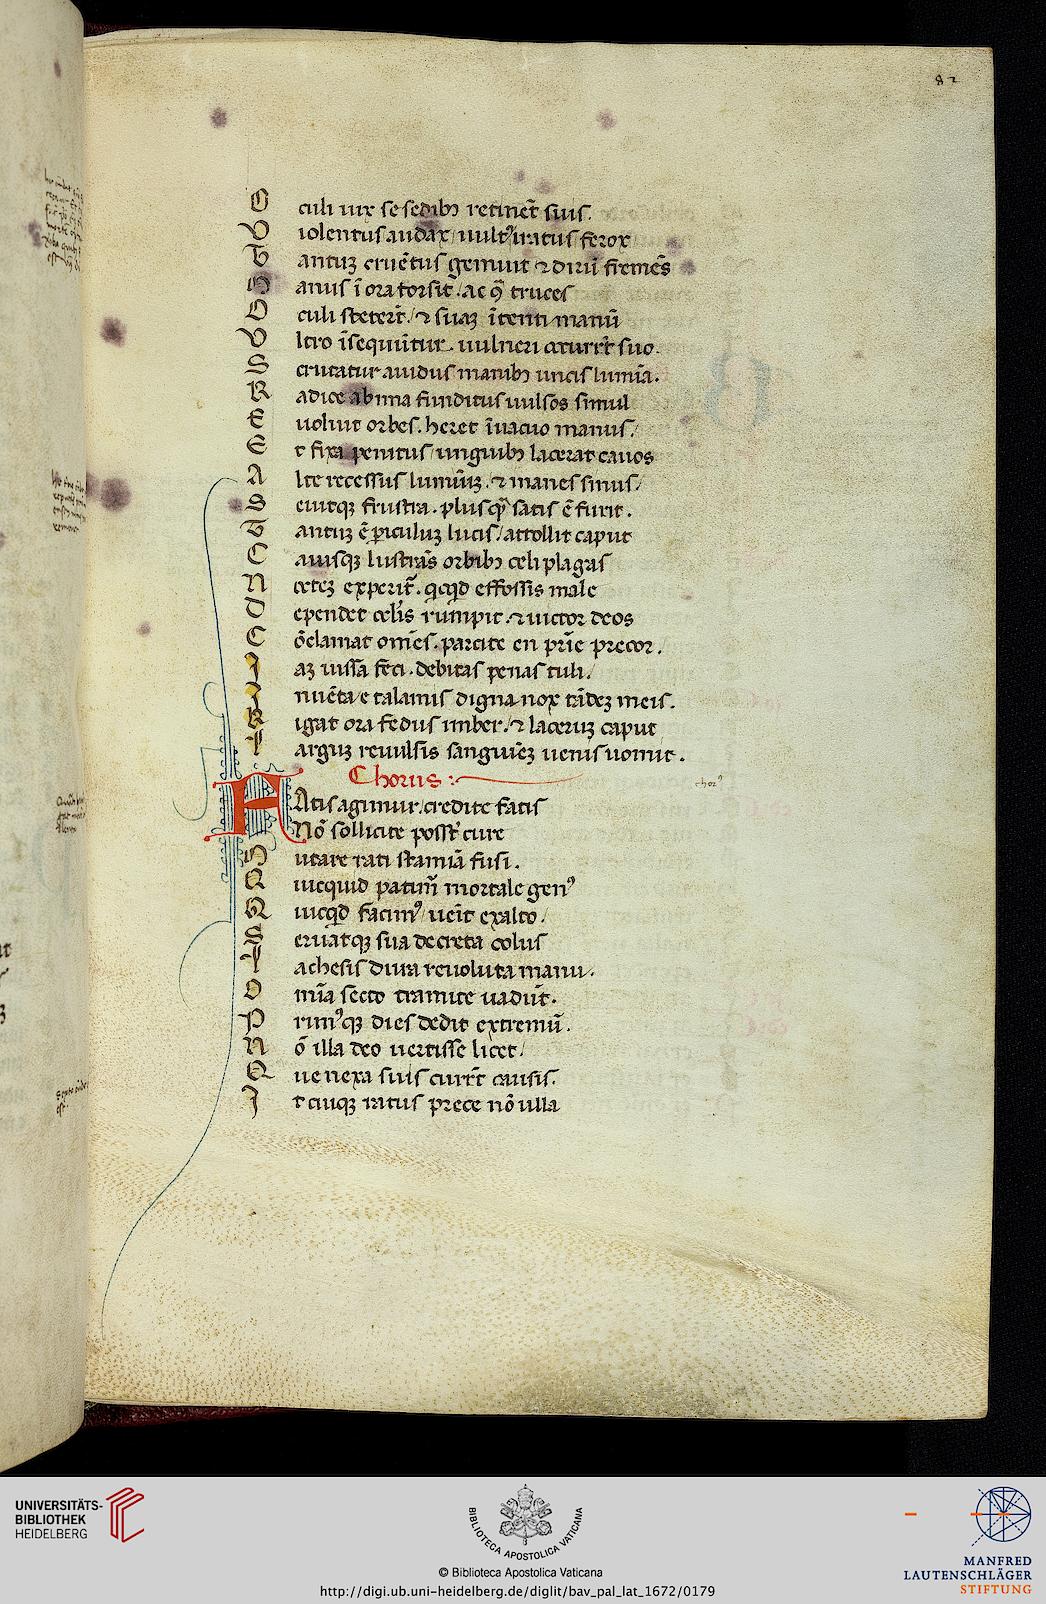 82
O culi uix se sedibꝫ retinēt suis.
V iolentus audax uultꝰ iratus ferox
T antuꝫ cruētus gemuit ⁊ dirū fremēs
M anus ī ora torsit. ac q̄ truces
O culi steterūt. ⁊ suaꝫ ītenti manū
V ltro īsequūtur. uulneri ocurrūt suo.
S crutatur auidus manibꝫ uncis lumīa.
R adice ab ima funditus uulsos simul
E uoluit orbes. heret ī uacuo manus.
E t fixa penitus unguibꝫ lacerat cauos
A lte recessus luminuꝫ. ⁊ inanes sinus.
S euitqꝫ frustra. plus q̄ satis ē furit.
T antuꝫ ē periculuꝫ lucis. attollit caput
C auisqꝫ lustrās orbibꝫ celi plagas
N octeꝫ experit̄. qcqd effossis male
D ependet oculis rumpit. ⁊ uictor deos
C ōclamat omēs. parcite en prīe precor.
I aꝫ iussa feci. debitas penas tuli.
I nuēta e talamis digna nox tādeꝫ meis.
R igat ora fedus imber. ⁊ laceruꝫ caput
L arguꝫ reuulsis sanguīeꝫ uenis uomit.
Chorus : choꝛꝰ
F Atis agimur. credite fatis
Nō sollicite possūt cure
M utare rati stamīa fusi.
Q uicquid patimū mortale genꝰ
Q uicqd facimꝰ ueīt ex alto.
S eruatqꝫ sua decreta colus
L achesis dura reuoluta manu.
O mīa secto tramite uadūt.
P rimꝰqꝫ dies dedit extremū.
N ō illa deo uertisse licet.
Q ue nexa suis currūt causis.
I t cuiqꝫ ratus prece nō ulla
UNIVERSITÄTS-
BIBLIOTHEK
HEIDELBERG
BIBLIOTECA APOSTOLICA VATICANA
© Biblioteca Apostolica Vaticana
http://digi.ub.uni-heidelberg.de/diglit/bav_pal_lat_1672/0179
MANFRED
LAUTENSCHLÄGER
STIFTUNG